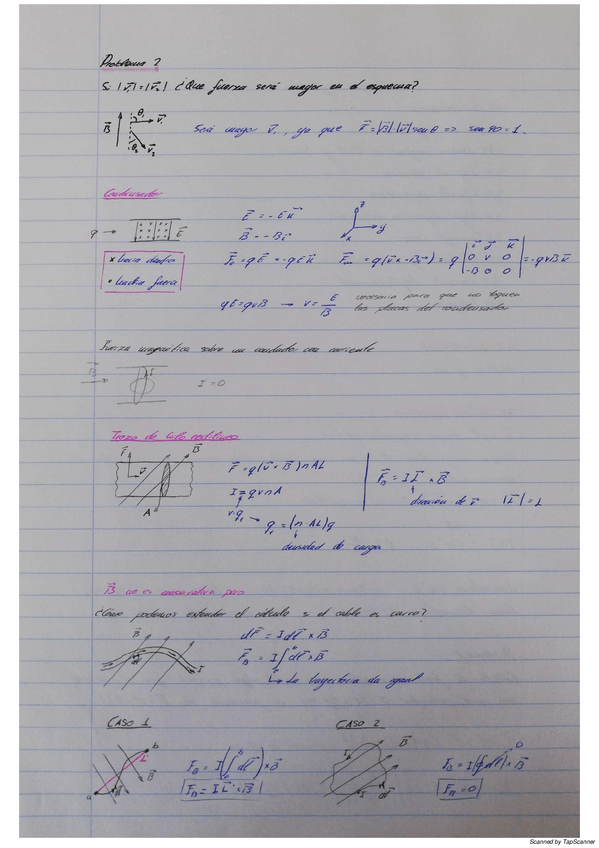 Problema 2
Si |v⃗₁| = |v⃗₂| ¿Que fuerza será mayor en el esquema?
B⃗ θ₁ v⃗₁ θ₂ v⃗₂
Será mayor v⃗₁, ya que F⃗ = |B⃗|·|v⃗| sen θ => sen 90 = 1.
Condensador
q → E⃗
E⃗ = -E k⃗
B⃗ = -B i⃗
z y x
× hacia dentro
• hacia fuera
F⃗e = qE⃗ = -qE k⃗
= q(v⃗ × -B i⃗) = q | i⃗ j⃗ k⃗ |
0 v 0
-B 0 0
= -qvB k⃗
qE = qvB → v = E/B
necesaria para que no toquen
las placas del condensador
Fuerza magnética sobre un conductor con corriente
B⃗ I
I = 0
Trozo de hilo rectilíneo
F⃗ v⃗ B⃗ A
F⃗ = q(v⃗ × B⃗) n A L
I = q v n A
q = (n·AL)q
densidad de carga
F⃗B = I L⃗ × B⃗
dirección de v⃗ |L⃗| = L
B⃗ no es conservativo pero
¿Cómo podemos extender el cálculo si el cable es curvo?
B⃗ dl⃗ I
dF⃗ = I dl⃗ × B⃗
F⃗B = I ∫ dl⃗ × B⃗
La trayectoria da igual
CASO 1
a b L⃗ dl⃗ B⃗
F⃗B = I(∫ dl⃗) × B⃗
F⃗B = I L⃗ × B⃗
CASO 2
I B⃗ I dl⃗
F⃗B = I(∮ dl⃗) × B⃗ 0
F⃗B = 0
Scanned by TapScanner